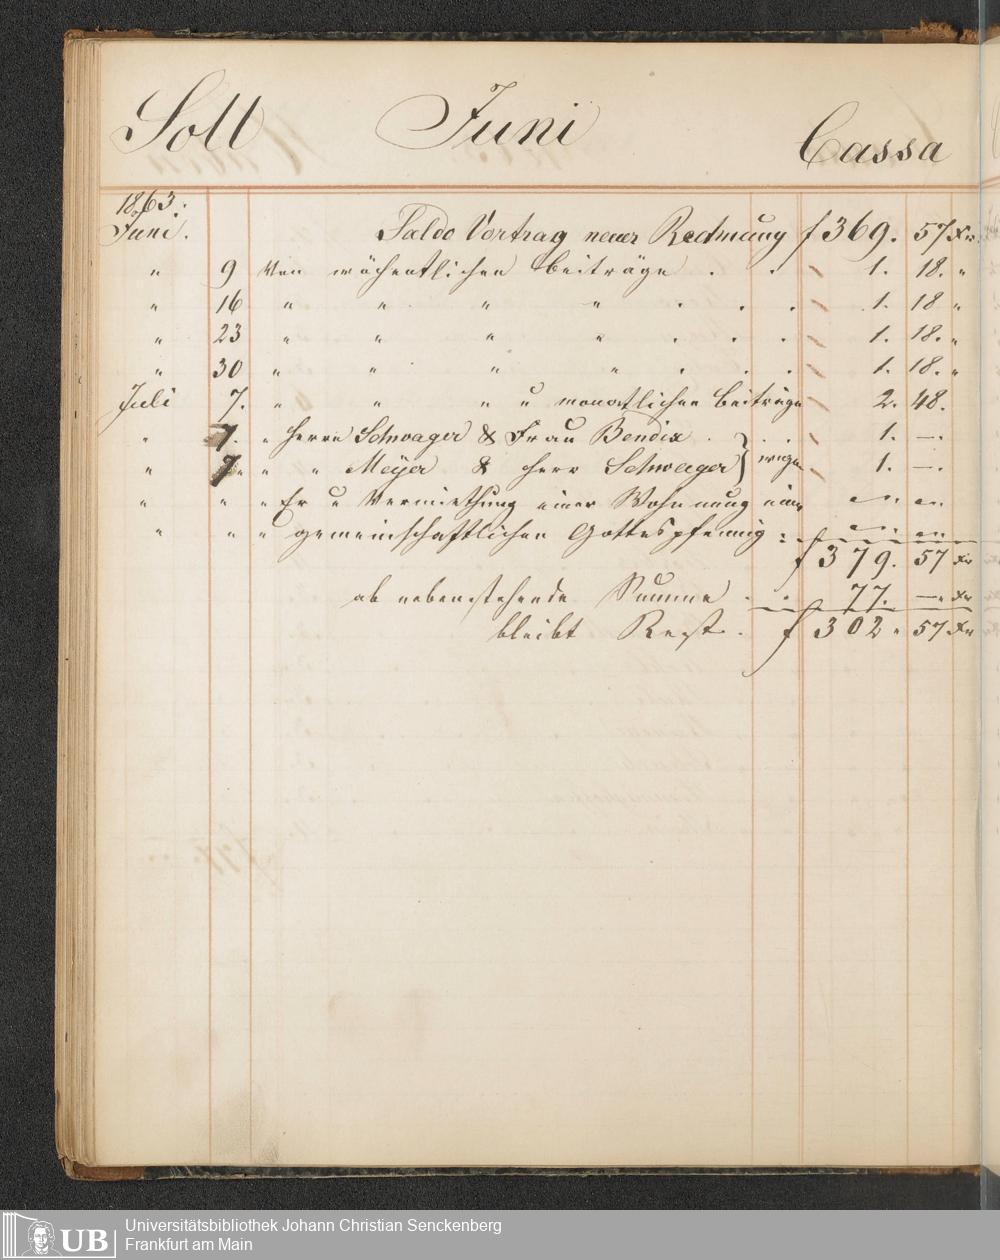 Soll Juni Cassa
1863.
Juni. Saldo Vortrag neuer Rechnung f 369. 57 Xr
" 9 Von wöchentlichen Beiträge . . " 1. 18. "
" 16 " " " " . . . " 1. 18 "
" 23 " " " " . . . " 1. 18. "
" 30 " " " " . . . " 1. 18. "
Juli 7. " " " u monatlichen Beiträge 2. 48.
" 7. " Herrn Schwager & Frau Bendix . } . . 1. —.
" 7. " " Meyer & Herr Schwager } wegen " 1. —.
" " " Er u Vermiethung einer Wohnung " "
" " " gemeinschaftlichen Gottespfennig : " "
f 379. 57 Xr
ab nebenstehende Summe . . 77. —. Xr
bleibt Rest . f 302. 57 Xr
UB Universitätsbibliothek Johann Christian Senckenberg
Frankfurt am Main